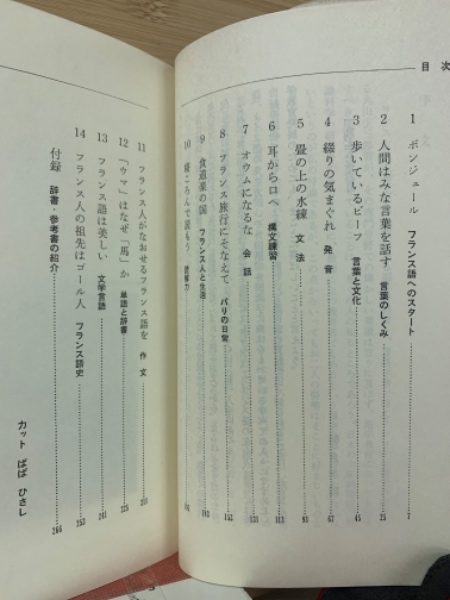 目次
1 ボンジュール フランス語へのスタート 7
2 人間はみな言葉を話す 言葉のしくみ 25
3 歩いているビーフ 言葉と文化 45
4 綴りの気まぐれ 発音 67
5 畳の上の水練 文法 93
6 耳から口へ 構文練習 113
7 オウムになるな 会話 131
8 フランス旅行にそなえて パリの日常 153
9 食道楽の国 フランス人と生活
10 寝ころんで読もう 読解力
11 フランス人がなおせるフランス語を 作文
12 「ウマ」はなぜ「馬」か 単語と辞書 225
13 フランス語は美しい 文学言語 241
14 フランス人の祖先はゴール人 フランス語史 253
付録 辞書・参考書の紹介 266
カット ばば ひさし